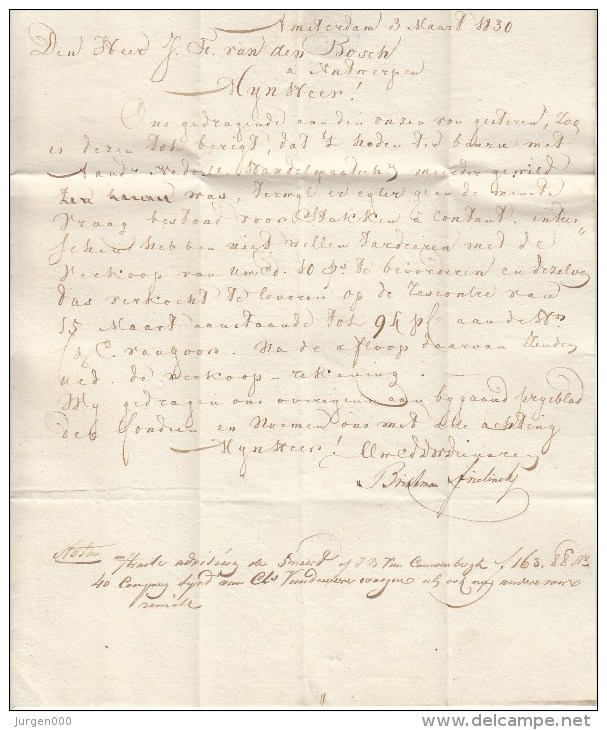 Amsterdam 3 Maart 1830
Den Heer J. F. van den Bosch
à Antwerpen
Mijn Heer!
Ons gedragende aan den onzen van gisteren, Zoo
is dezen tot berigt, dat 't heden ter beurs met
Aand: Nederl: Handelmaatsch: minder gewild
was, terwijl er egter geen de minste
vraag bestond voor Stukken à Contant. intus
schen hebben niet willen tardeeren met de
verkoop van 40 te bevorderen en dezelve
dus verkocht te leveren op de Rescontre van
15 Maart aanstaande tot 94 pC aan de
C. van Goor. Na de afloop daarvan Zenden
ued. de verkoop-rekening.
Wij gedragen ons overigens aan bygaand prysblad
der fondsen en Noemen ons met alle achting
Mijn Heer! UwEdDwDienaren
Brinkman
Nota
de Smeet J B Van Cauwenbergh f. 163. 88
40 van Cls
remise
Jurgen000
www.delcampe.net